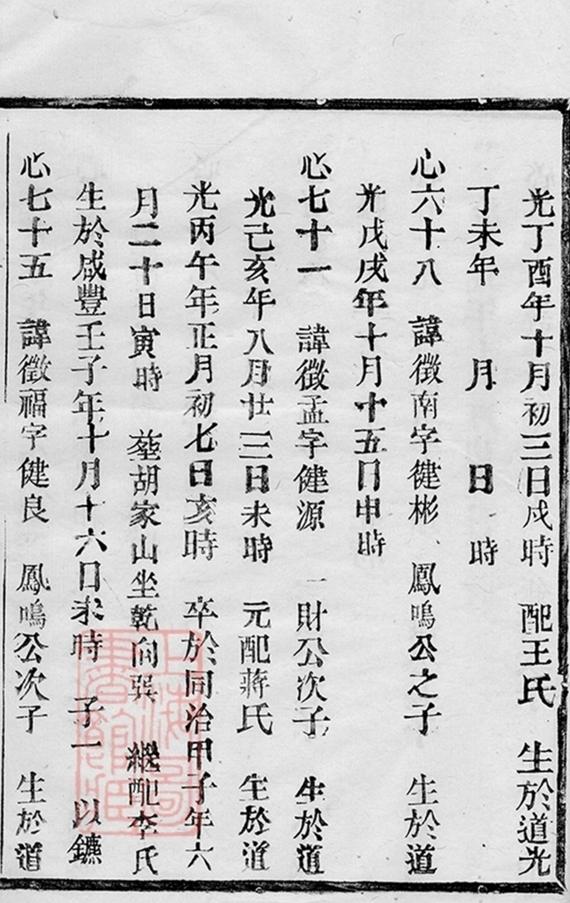 光丁酉年十月初三日戌時 配王氏 生於道光
丁未年 月 日 時
心六十八 諱徵南字健彬 鳳鳴公之子 生於道
光戊戌年十月十五日申時
心七十一 諱徵孟字健源 一財公次子 生於道
光己亥年八月廿三日未時 元配蔣氏 生於道
光丙午年正月初七日亥時 卒於同治甲子年六
月二十日寅時 塟胡家山坐乾向巽 繼配李氏
生於咸豐壬子年十月十六日未時 子一 以鑣
心七十五 諱徵福字健良 鳳鳴公次子 生於道